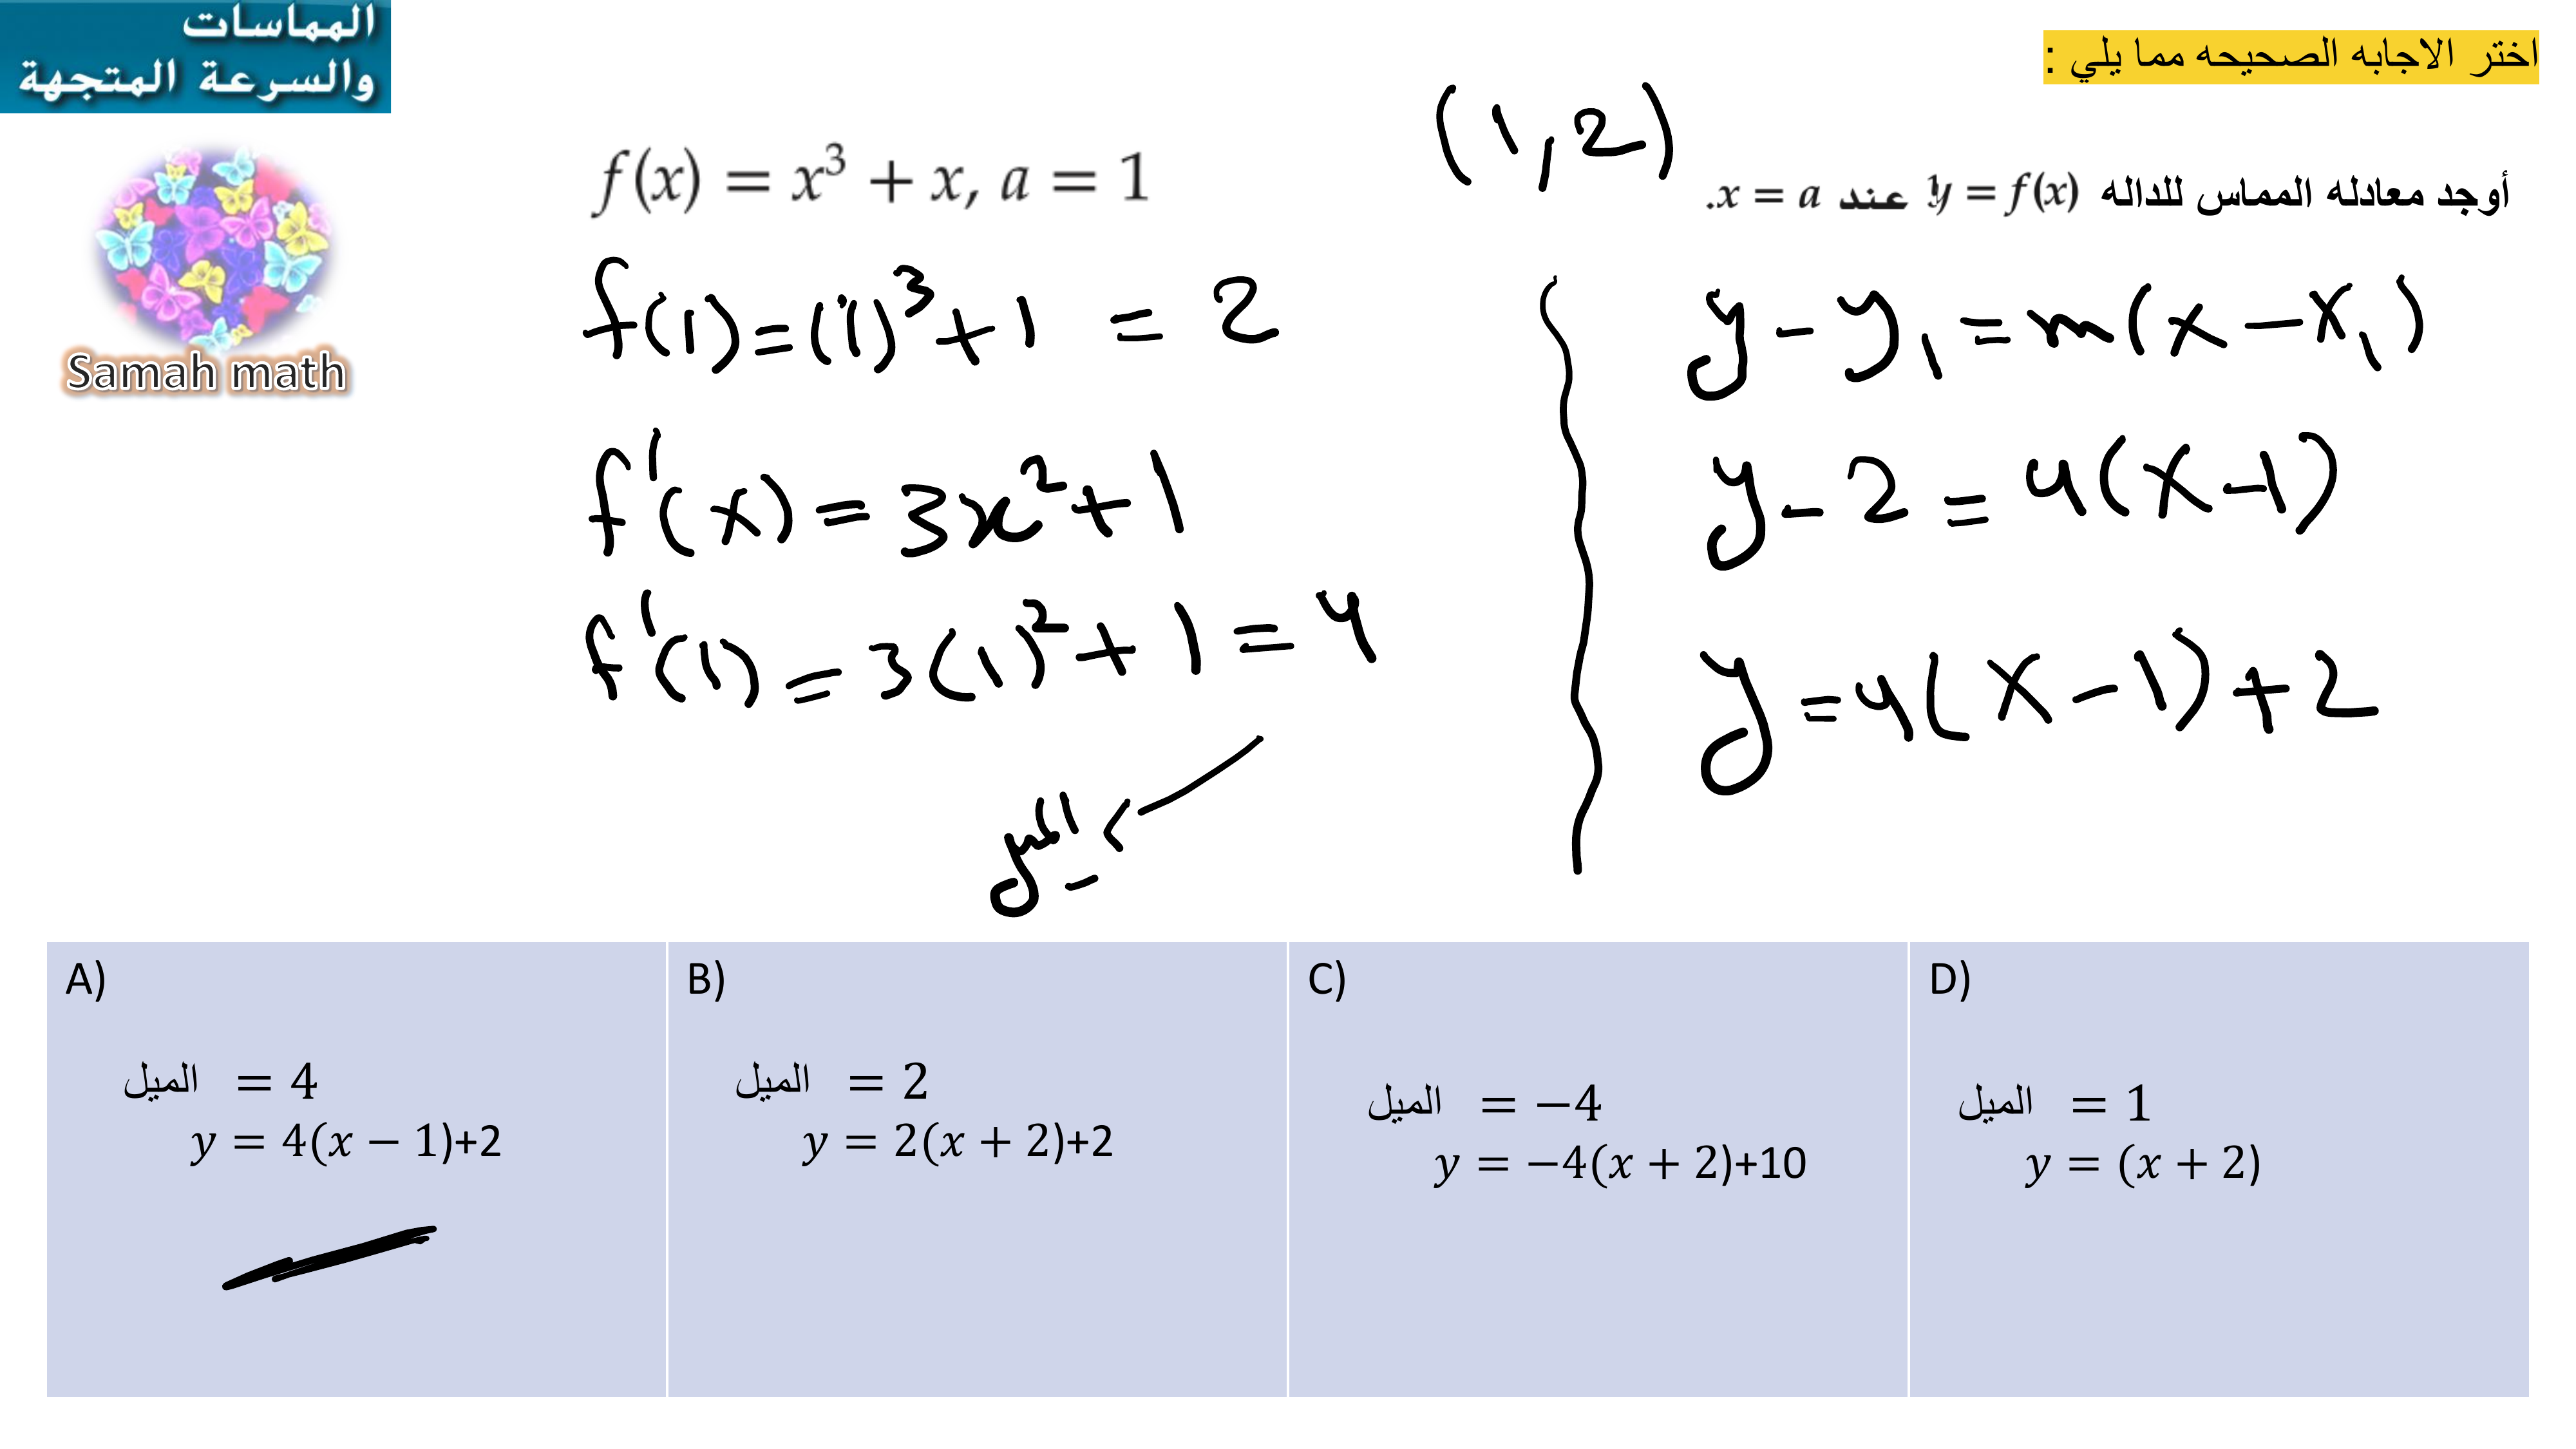 المماسات
والسرعة المتجهة
Samah math
اختر الاجابه الصحيحه مما يلي :
أوجد معادله المماس للداله y = f(x) عند x = a.
f(x) = x³ + x, a = 1
(1,2)
f(1)=(1)³+1 = 2
f'(x) = 3x²+1
f'(1) = 3(1)²+1 = 4
الميل
y-y₁=m(x-x₁)
y-2 = 4(x-1)
y=4(x-1)+2
A)
الميل = 4
y = 4(x − 1)+2
B)
الميل = 2
y = 2(x + 2)+2
C)
الميل = −4
y = −4(x + 2)+10
D)
الميل = 1
y = (x + 2)